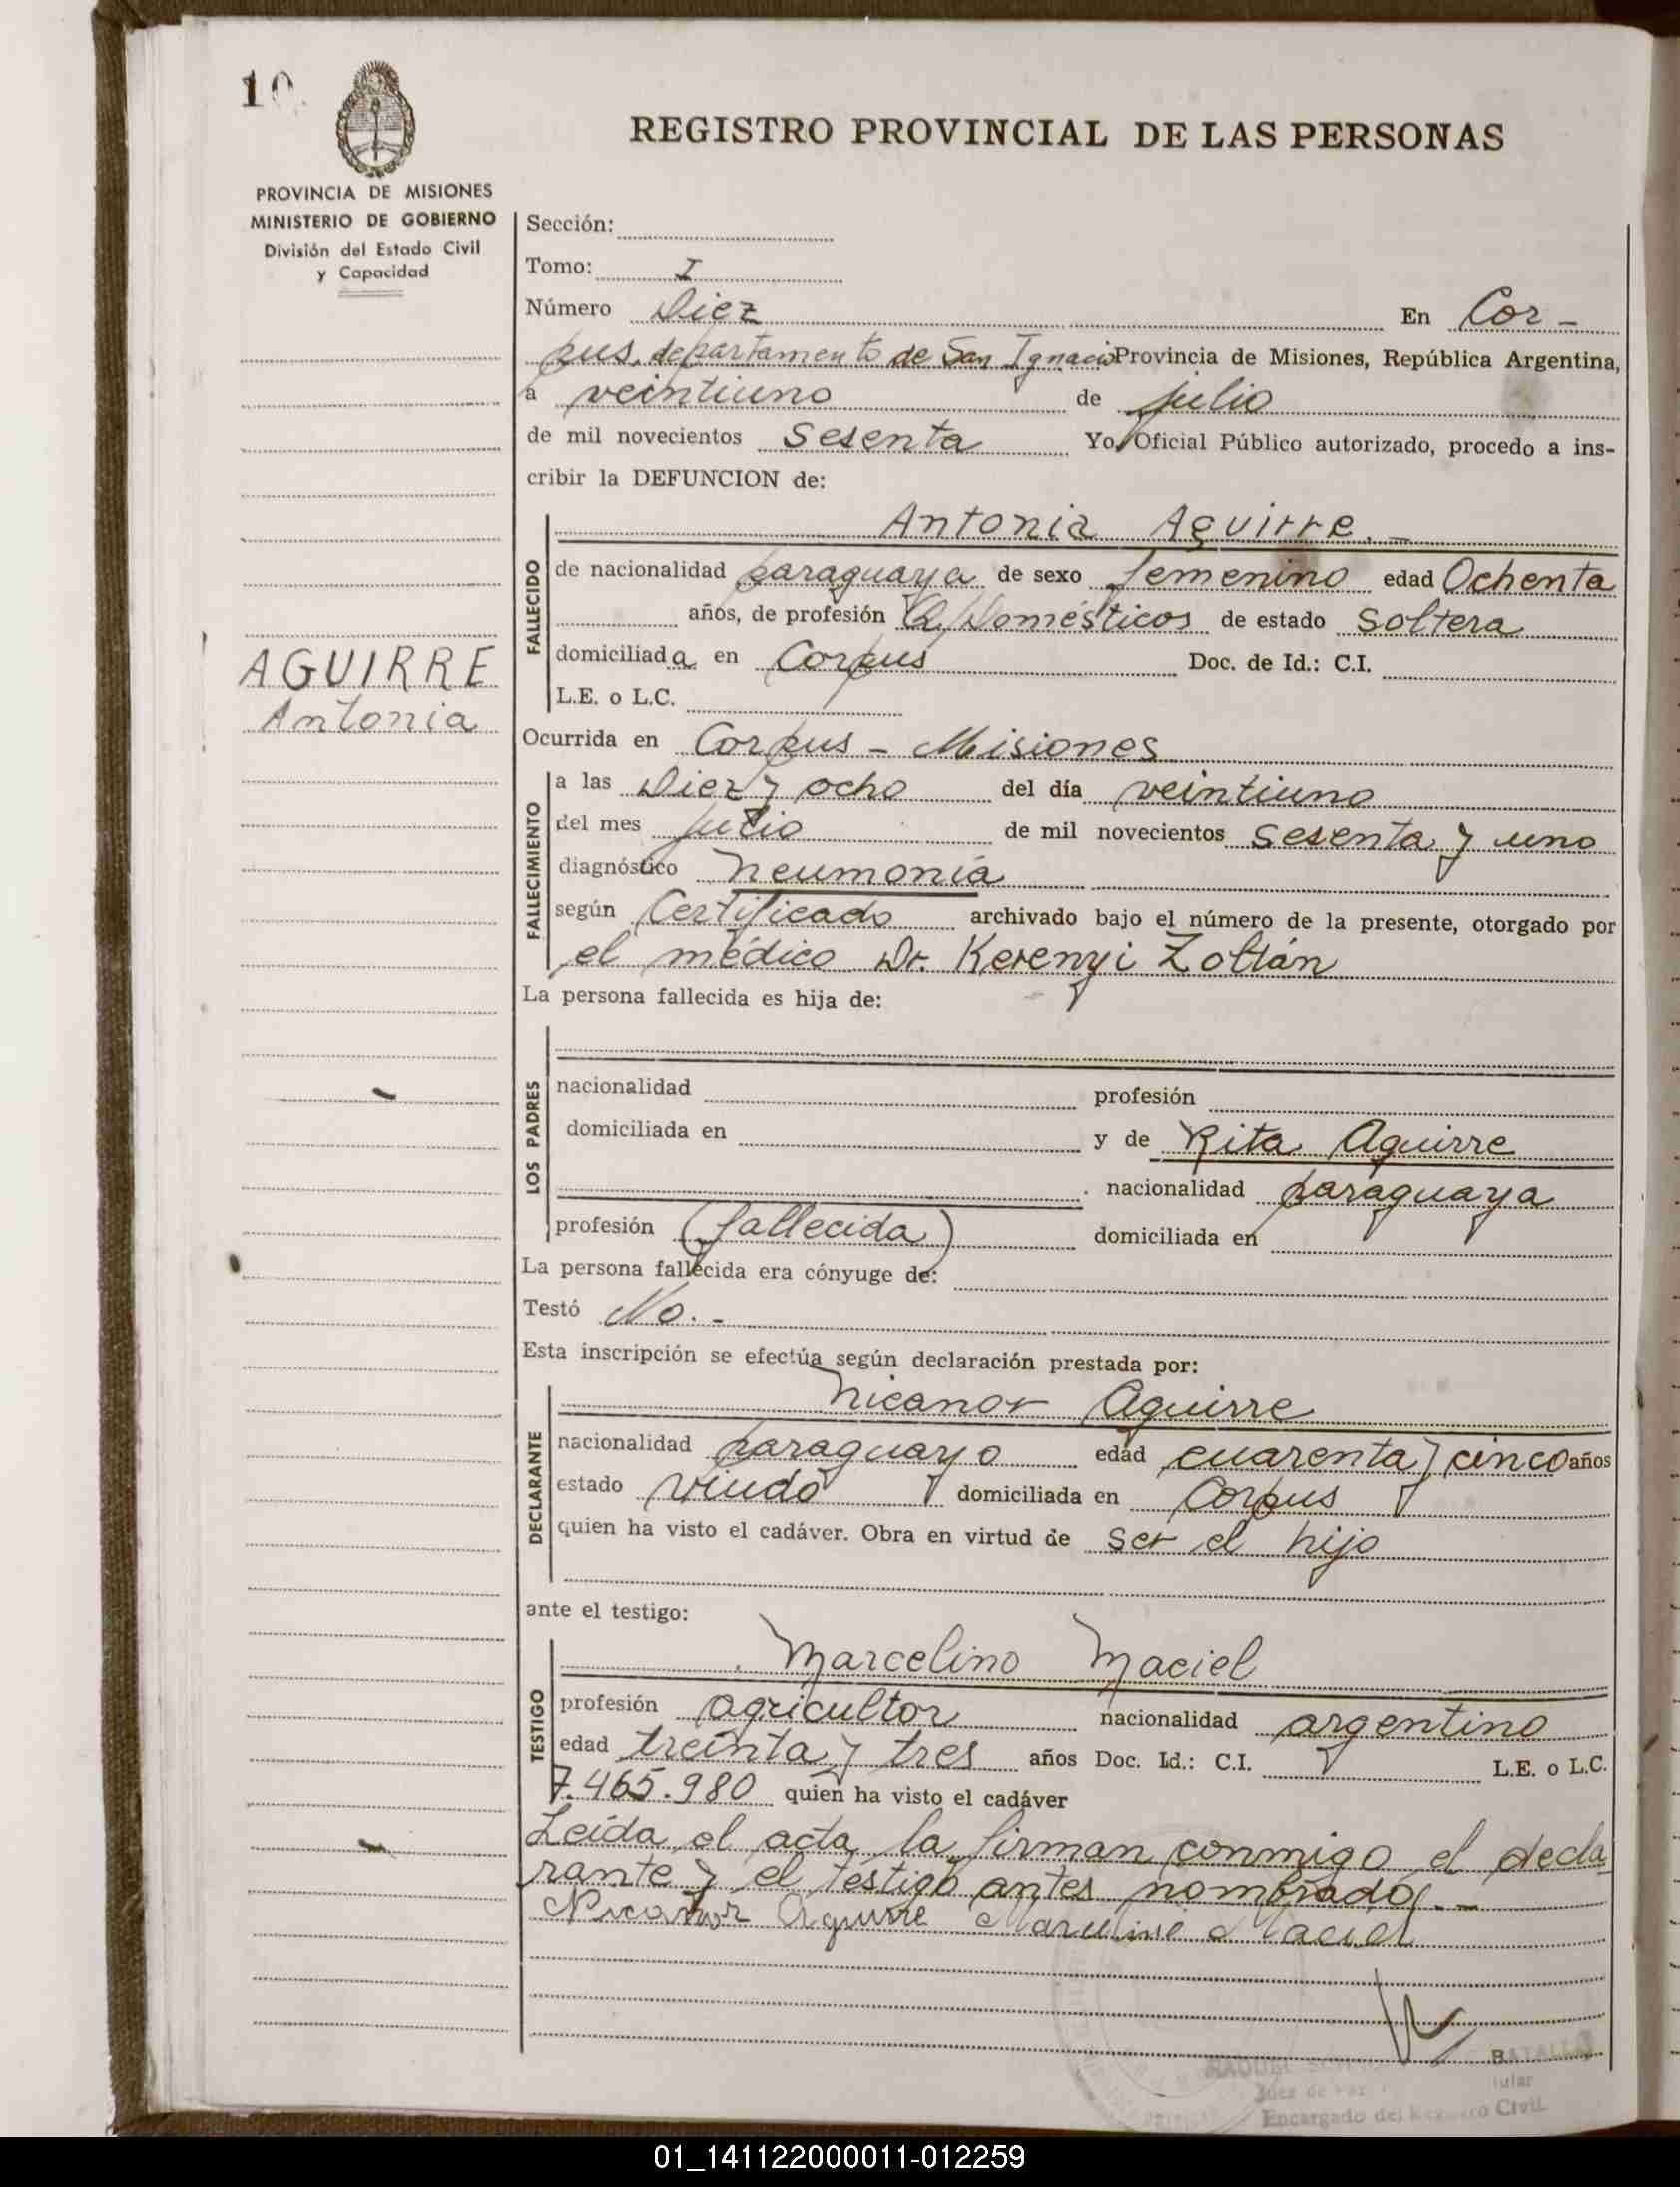 10
REGISTRO PROVINCIAL DE LAS PERSONAS
PROVINCIA DE MISIONES
MINISTERIO DE GOBIERNO
División del Estado Civil
y Capacidad
Sección:
Tomo: I
Número Diez En Cor-
pus, departamento de San Ignacio Provincia de Misiones, República Argentina,
a veintiuno de julio
de mil novecientos Sesenta Yo, Oficial Público autorizado, procedo a ins-
cribir la DEFUNCION de:
Antonia Aguirre.-
FALLECIDO
de nacionalidad paraguaya de sexo femenino edad Ochenta
años, de profesión Q. Domésticos de estado Soltera
domiciliada en Corpus Doc. de Id.: C.I.
L.E. o L.C.
AGUIRRE
Antonia
Ocurrida en Corpus - Misiones
FALLECIMIENTO
a las Diez y ocho del día veintiuno
del mes julio de mil novecientos Sesenta y uno
diagnóstico Neumonía
según Certificado archivado bajo el número de la presente, otorgado por
el médico Dr. Kerenyi Zoltán
La persona fallecida es hija de:
LOS PADRES
nacionalidad profesión
domiciliada en y de Rita Aguirre
nacionalidad paraguaya
profesión (fallecida) domiciliada en
La persona fallecida era cónyuge de:
Testó No.-
Esta inscripción se efectúa según declaración prestada por:
Nicanor Aguirre
DECLARANTE
nacionalidad paraguayo edad cuarenta y cinco años
estado Viudo domiciliada en Corpus
quien ha visto el cadáver. Obra en virtud de Ser el hijo
ante el testigo:
Marcelino Maciel
TESTIGO
profesión agricultor nacionalidad argentino
edad treinta y tres años Doc. Id.: C.I. L.E. o L.C.
7.465.980 quien ha visto el cadáver
Leída el acta la firman conmigo el decla-
rante y el testigo antes nombrado.-
Nicanor Aguirre Marcelino Maciel
BATALLA
Juez de Paz
Encargado del Registro Civil
01_141122000011-012259